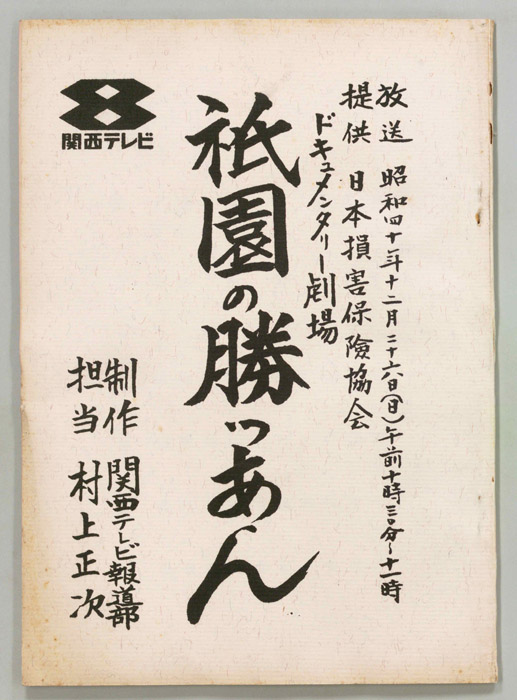 放送 昭和四十年十二月二十六日(日)午前十時三〇分〜十一時
提供 日本損害保険協会
ドキュメンタリー劇場
祇園の勝っあん
関西テレビ
制作 関西テレビ報道部
担当 村上正次